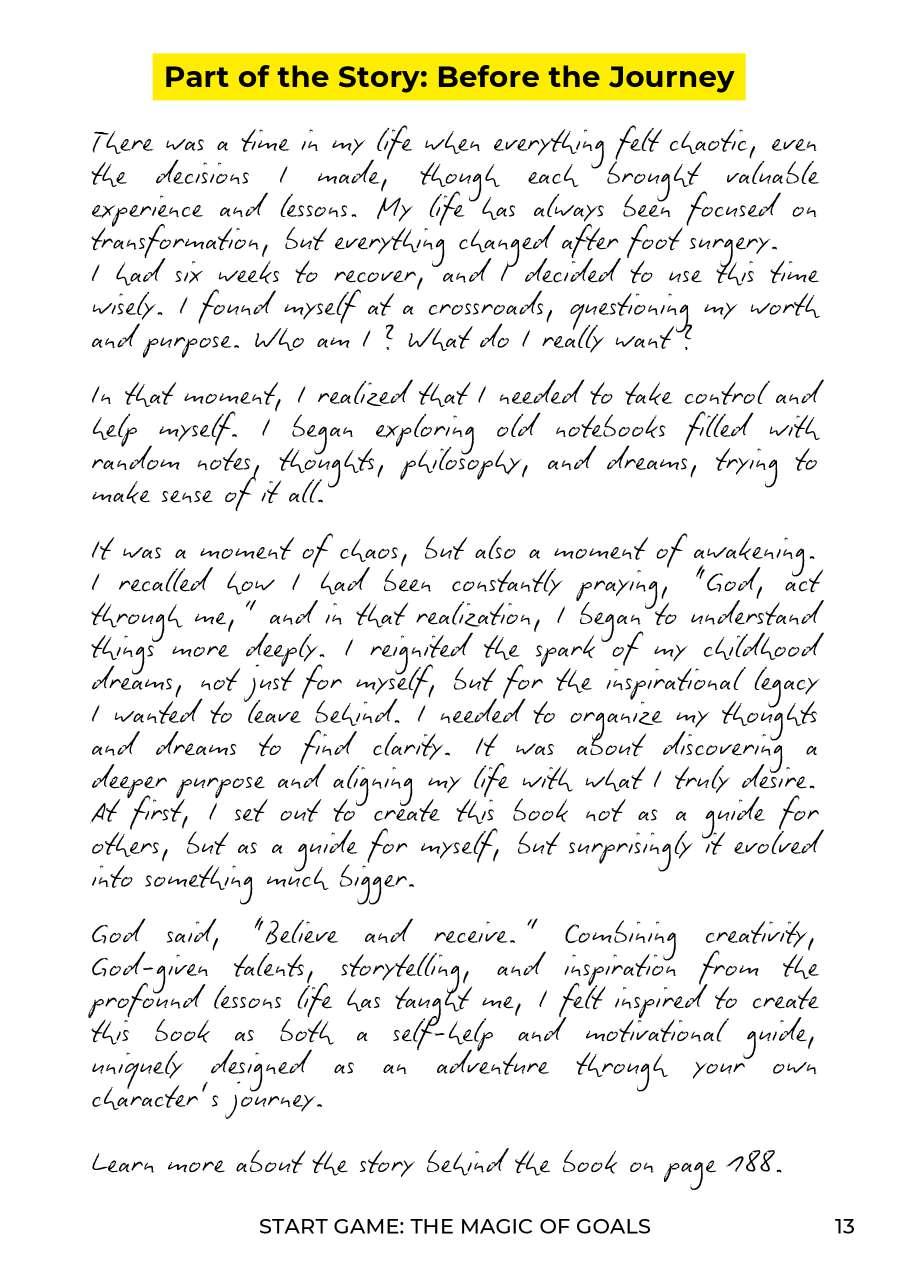 Part of the Story: Before the Journey
There was a time in my life when everything felt chaotic, even
the decisions I made, though each brought valuable
experience and lessons. My life has always been focused on
transformation, but everything changed after foot surgery.
I had six weeks to recover, and I decided to use this time
wisely. I found myself at a crossroads, questioning my worth
and purpose. Who am I? What do I really want?
In that moment, I realized that I needed to take control and
help myself. I began exploring old notebooks filled with
random notes, thoughts, philosophy, and dreams, trying to
make sense of it all.
It was a moment of chaos, but also a moment of awakening.
I recalled how I had been constantly praying, "God, act
through me," and in that realization, I began to understand
things more deeply. I reignited the spark of my childhood
dreams, not just for myself, but for the inspirational legacy
I wanted to leave behind. I needed to organize my thoughts
and dreams to find clarity. It was about discovering a
deeper purpose and aligning my life with what I truly desire.
At first, I set out to create this book not as a guide for
others, but as a guide for myself, but surprisingly it evolved
into something much bigger.
God said, "Believe and receive." Combining creativity,
God-given talents, storytelling, and inspiration from the
profound lessons life has taught me, I felt inspired to create
this book as both a self-help and motivational guide,
uniquely designed as an adventure through your own
character's journey.
Learn more about the story behind the book on page 188.
START GAME: THE MAGIC OF GOALS 13